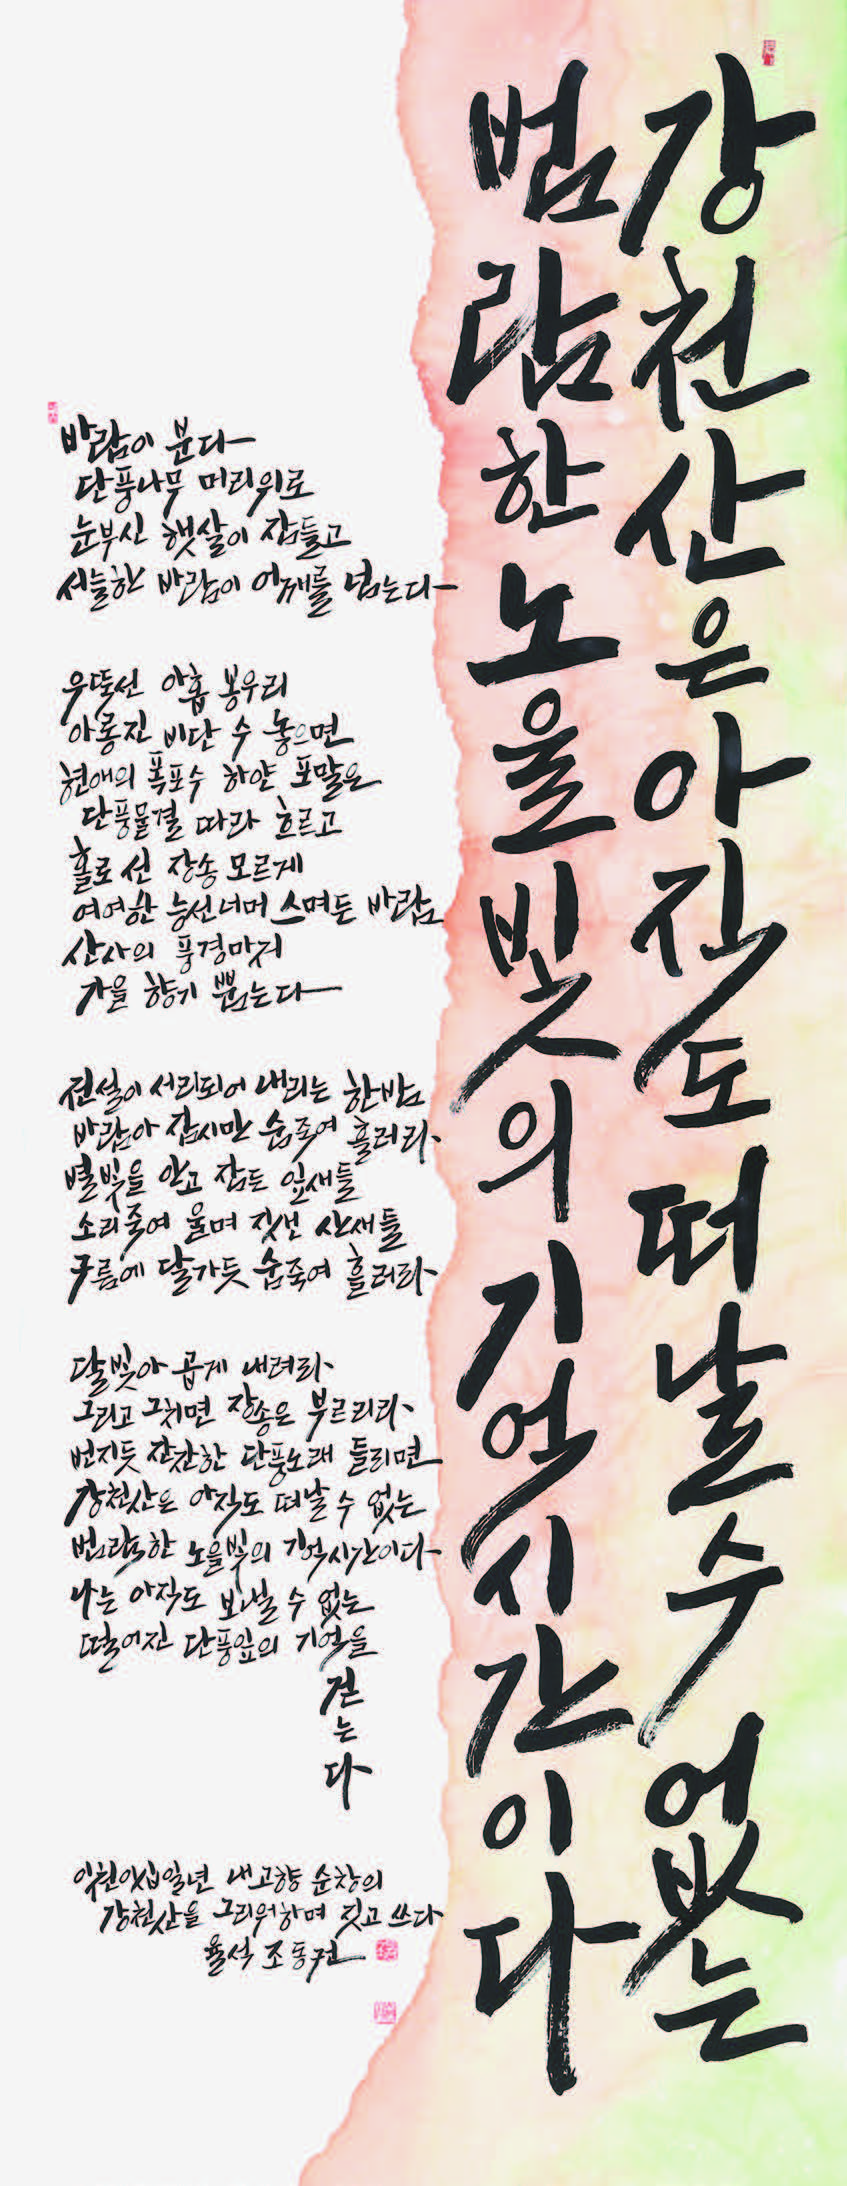 강천산은 아직도 떠날 수 없는
범람한 노을빛의 기억시간이다
바람이 분다
단풍나무 머리위로
눈부신 햇살이 잠들고
서늘한 바람이 어깨를 넘는다
우뚝선 아홉 봉우리
아롱진 비단 수 놓으면
현애의 폭포수 하얀 포말은
단풍물결 따라 흐르고
홀로 선 장송 모르게
여여한 능선너머 스며든 바람
산사의 풍경마저
가을 향기 뿜는다
전설이 서리되어 내리는 한밤
바람아 잠시만 숨죽여 흘러라
별빛을 안고 잠든 잎새들
소리죽여 울며 짓는 산새들
구름에 달가듯 숨죽여 흘러라
달빛아 곱게 내려라
그리고 그치면 장송은 부르리라
번지듯 잔잔한 단풍노래 들리면
강천산은 아직도 떠날 수 없는
범람한 노을빛의 기억시간이다
나는 아직도 보낼 수 없는
떨어진 단풍잎의 기억을
걷
는
다
이천이십일년 내고향 순창의
강천산을 그리워하며 짓고 쓰다
율석 조동권